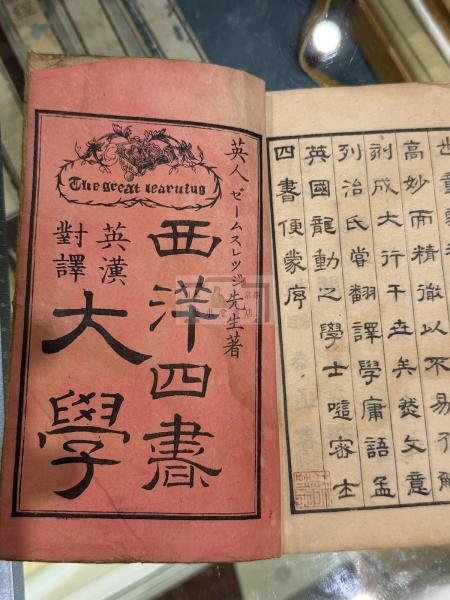 The great learning
英人ゼームスレッジ先生著
西洋四書
英漢
對譯
大學
四書便蒙序
英國龍動之學士密士
列治氏嘗翻譯學庸語孟
刻成大行于世矣然文意
高妙而精徹以不易了解